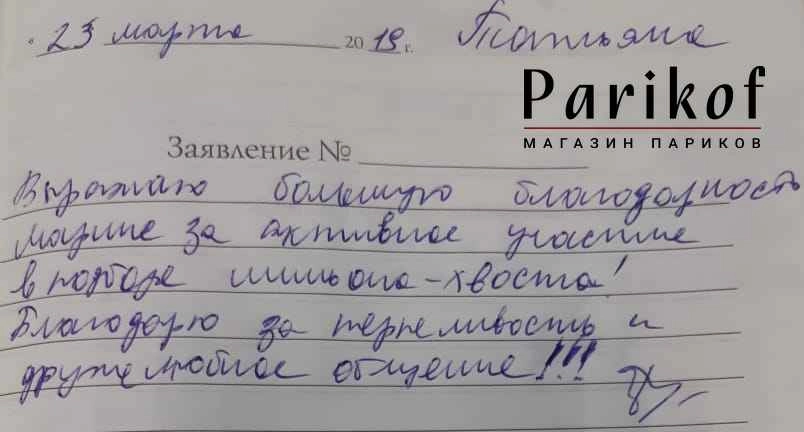 23 марта 2019 г. Татьяна
Parikof
МАГАЗИН ПАРИКОВ
Заявление №
Выражаю большую благодарность
Марине за активное участие
в подборе шиньона-хвоста!
Благодарю за терпеливость и
дружелюбное общение!!!